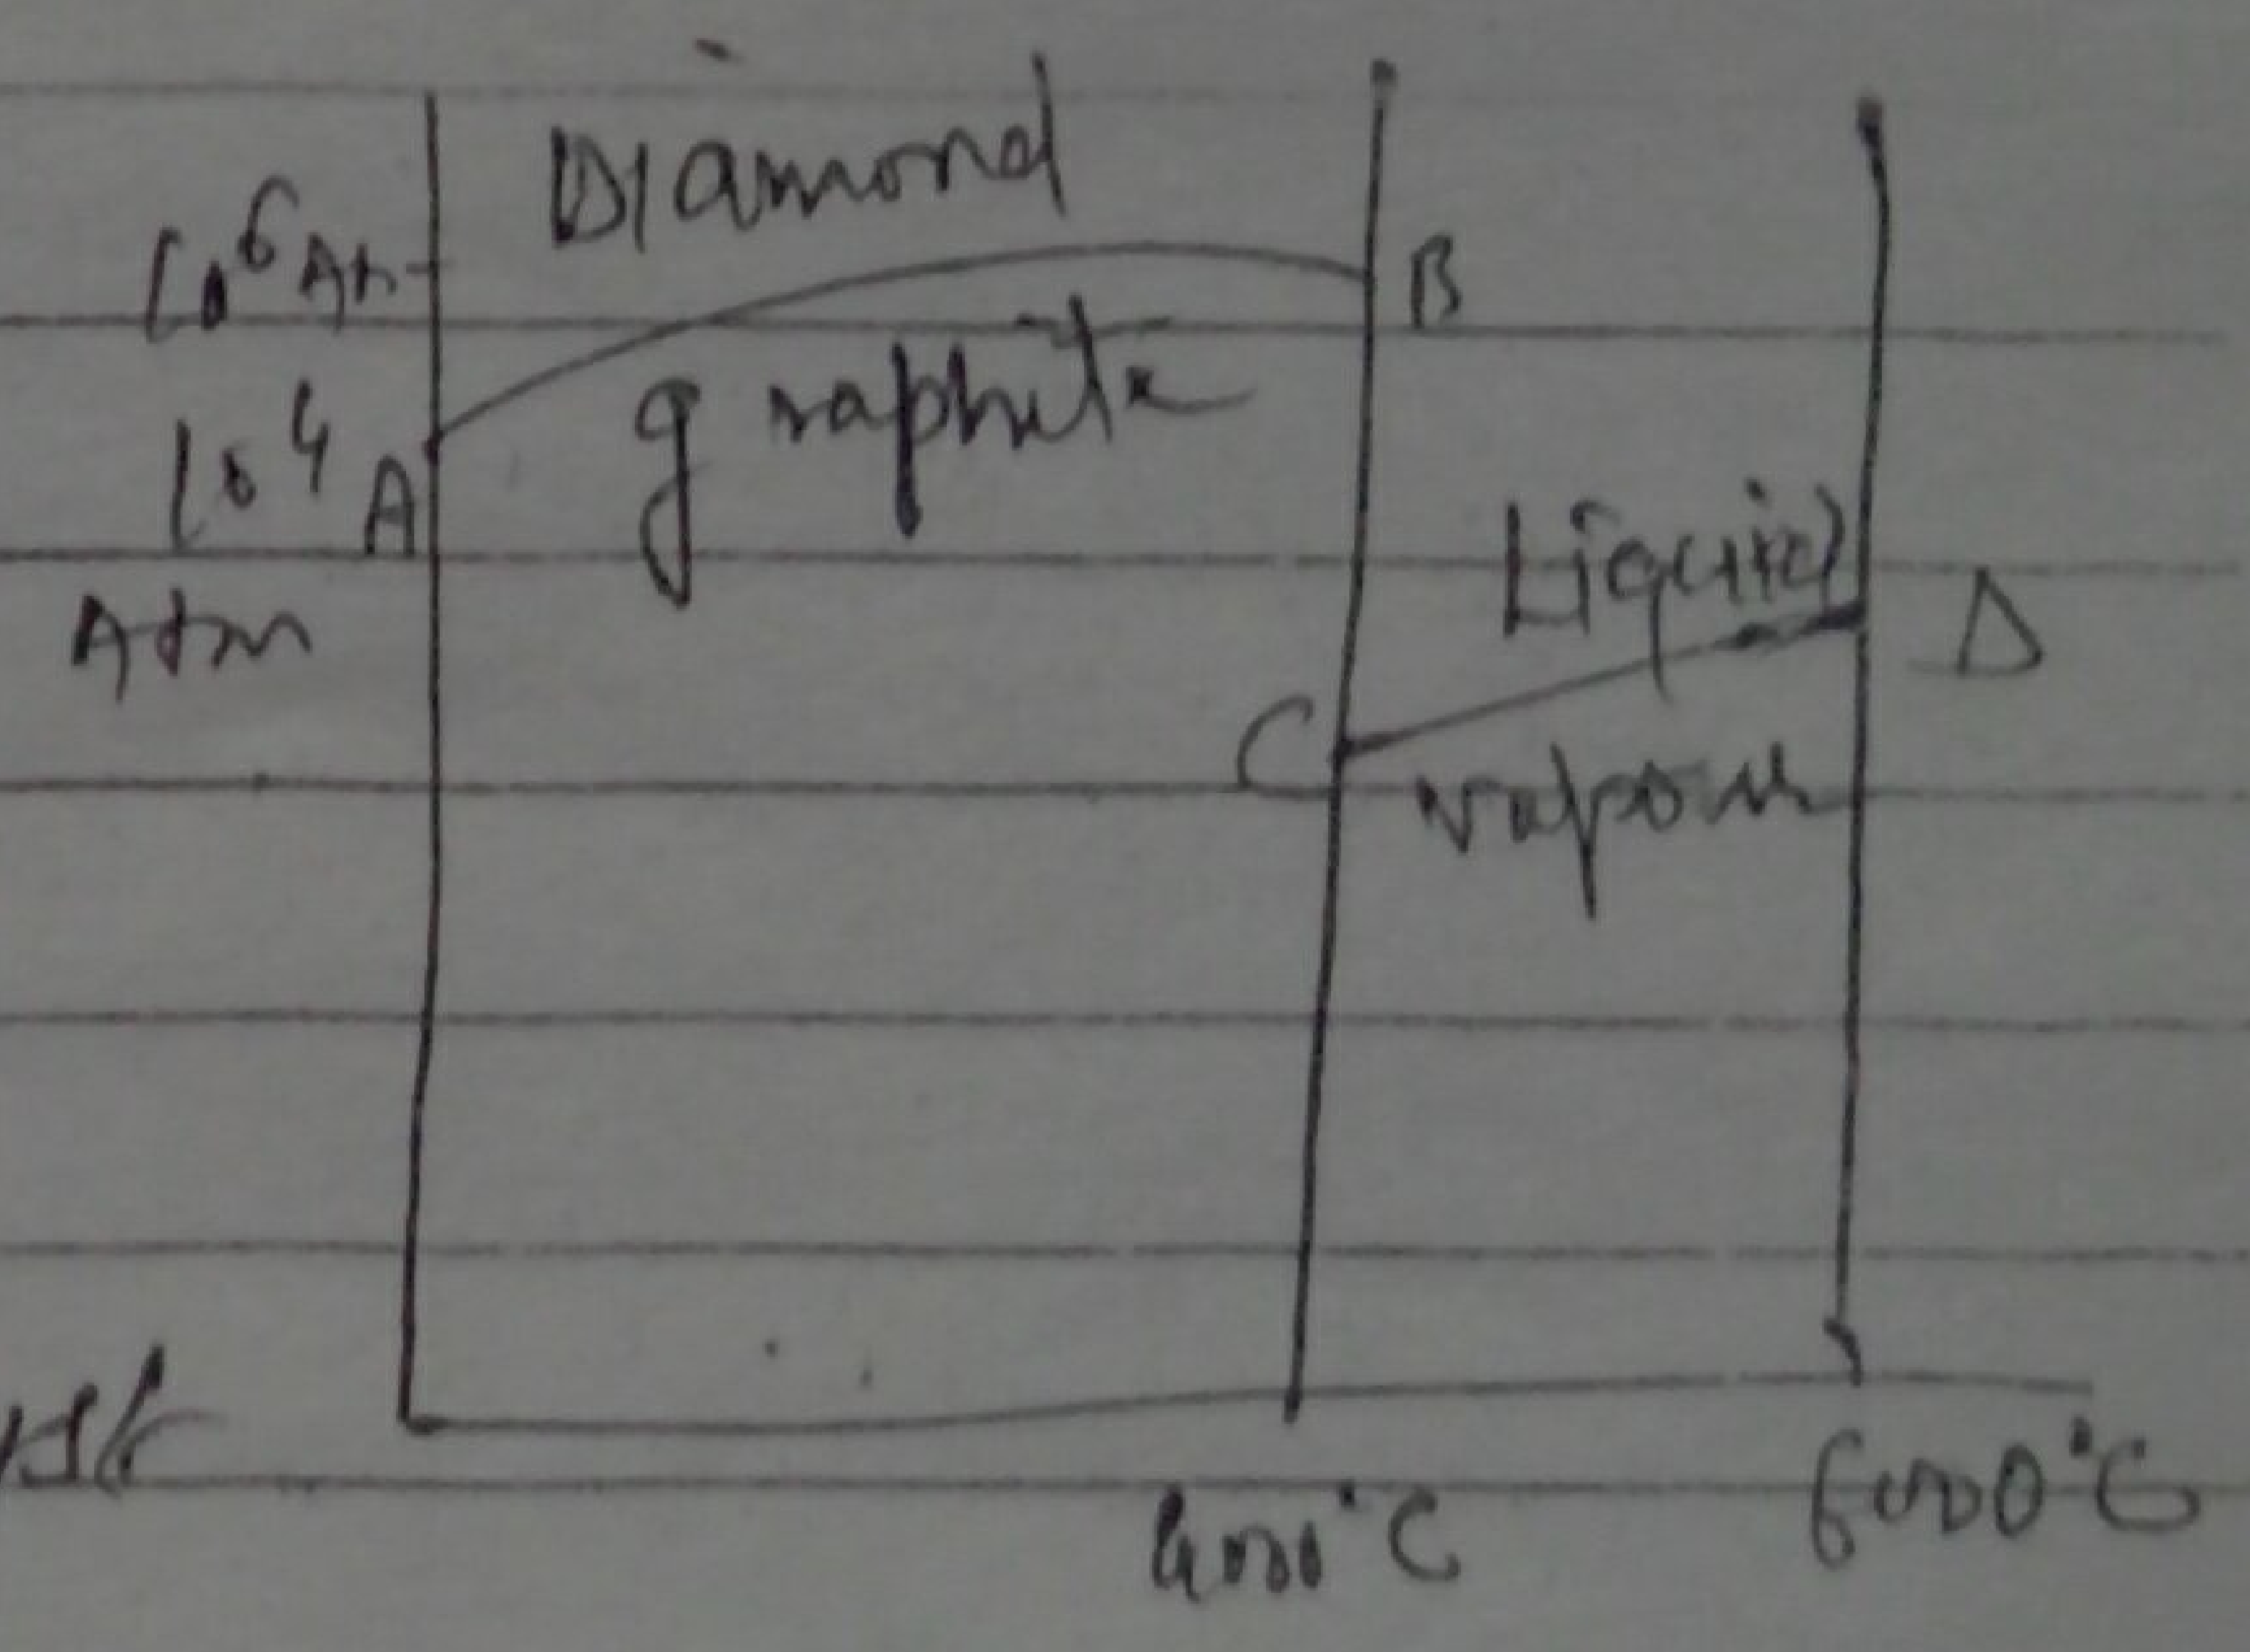 Diamond
10⁶ Atm
B
graphite
10⁴
A
Atm
Liquid
D
C
vapour
4000°C
6000°C